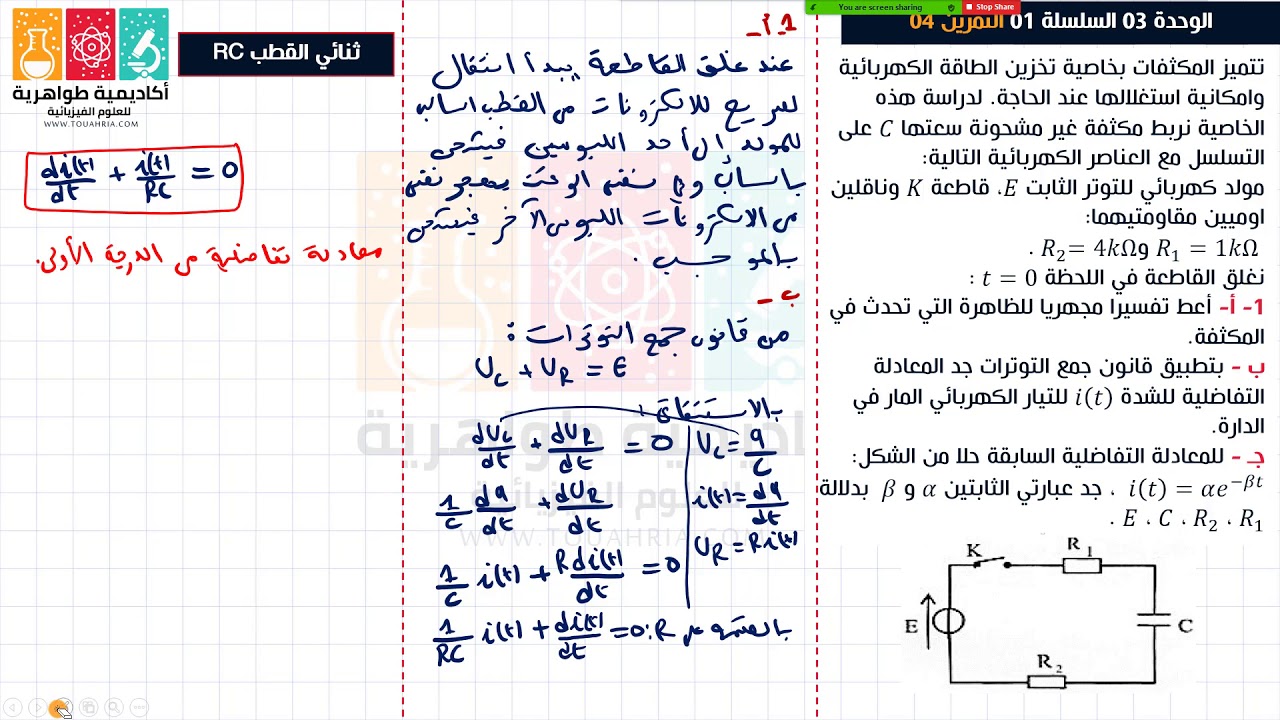 You are screen sharing
Stop Share
الوحدة 03 السلسلة 01 التمرين 04
تتميز المكثفات بخاصية تخزين الطاقة الكهربائية
وامكانية استغلالها عند الحاجة. لدراسة هذه
الخاصية نربط مكثفة غير مشحونة سعتها C على
التسلسل مع العناصر الكهربائية التالية:
مولد كهربائي للتوتر الثابت E، قاطعة K وناقلين
اوميين مقاومتيهما:
R₁ = 1kΩ و R₂= 4kΩ .
نغلق القاطعة في اللحظة t = 0 :
1- أ- أعط تفسيرا مجهريا للظاهرة التي تحدث في
المكثفة.
ب - بتطبيق قانون جمع التوترات جد المعادلة
التفاضلية للشدة i(t) للتيار الكهربائي المار في
الدارة.
جـ - للمعادلة التفاضلية السابقة حلا من الشكل:
i(t) = αe^{-βt} ، جد عبارتي الثابتين α و β بدلالة
R₁ ، R₂ ، C ، E .
K
R₁
E
C
R₂
1.أ-
عند غلق القاطعة يبدأ انتقال
سريع للالكترونات من القطب السالب
للمولد إلى أحد اللبوسين فيشحن
بالسالب وفي نفس الوقت يهجر نفس
من الالكترونات اللبوس الآخر فيشحن
بالموجب .
ب -
من قانون جمع التوترات :
U_C + U_R = E
بالاشتقاق :
dU_C/dt + dU_R/dt = 0
U_C = q/C
1/C dq/dt + dU_R/dt
i(t) = dq/dt
U_R = R i(t)
1/C i(t) + R di(t)/dt = 0
1/RC i(t) + di(t)/dt = 0 : R بالقسمة على
ثنائي القطب RC
أكاديمية طواهرية
للعلوم الفيزيائية
WWW.TOUAHRIA.COM
di(t)/dt + i(t)/RC = 0
معادلة تفاضلية من الدرجة الأولى.
أكاديمية طواهرية
للعلوم الفيزيائية
WWW.TOUAHRIA.COM